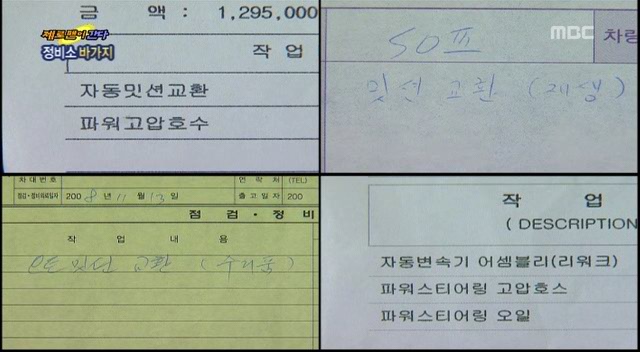 제로맨이 간다
정비소 바가지
금 액 : 1,295,000
작 업
자동밋션교환
파워고압호수
MBC
50프
차량
밋션 교환 (재생)
차대번호
연락처 (TEL)
점검·정비의뢰일자 2008년 11월 13일
출고일자 200
점검·정비
작 업 내 용
오토밋션 교환 (수리품)
작 업
( DESCRIPTION
자동변속기 어셈블리(리워크)
파워스티어링 고압호스
파워스티어링 오일